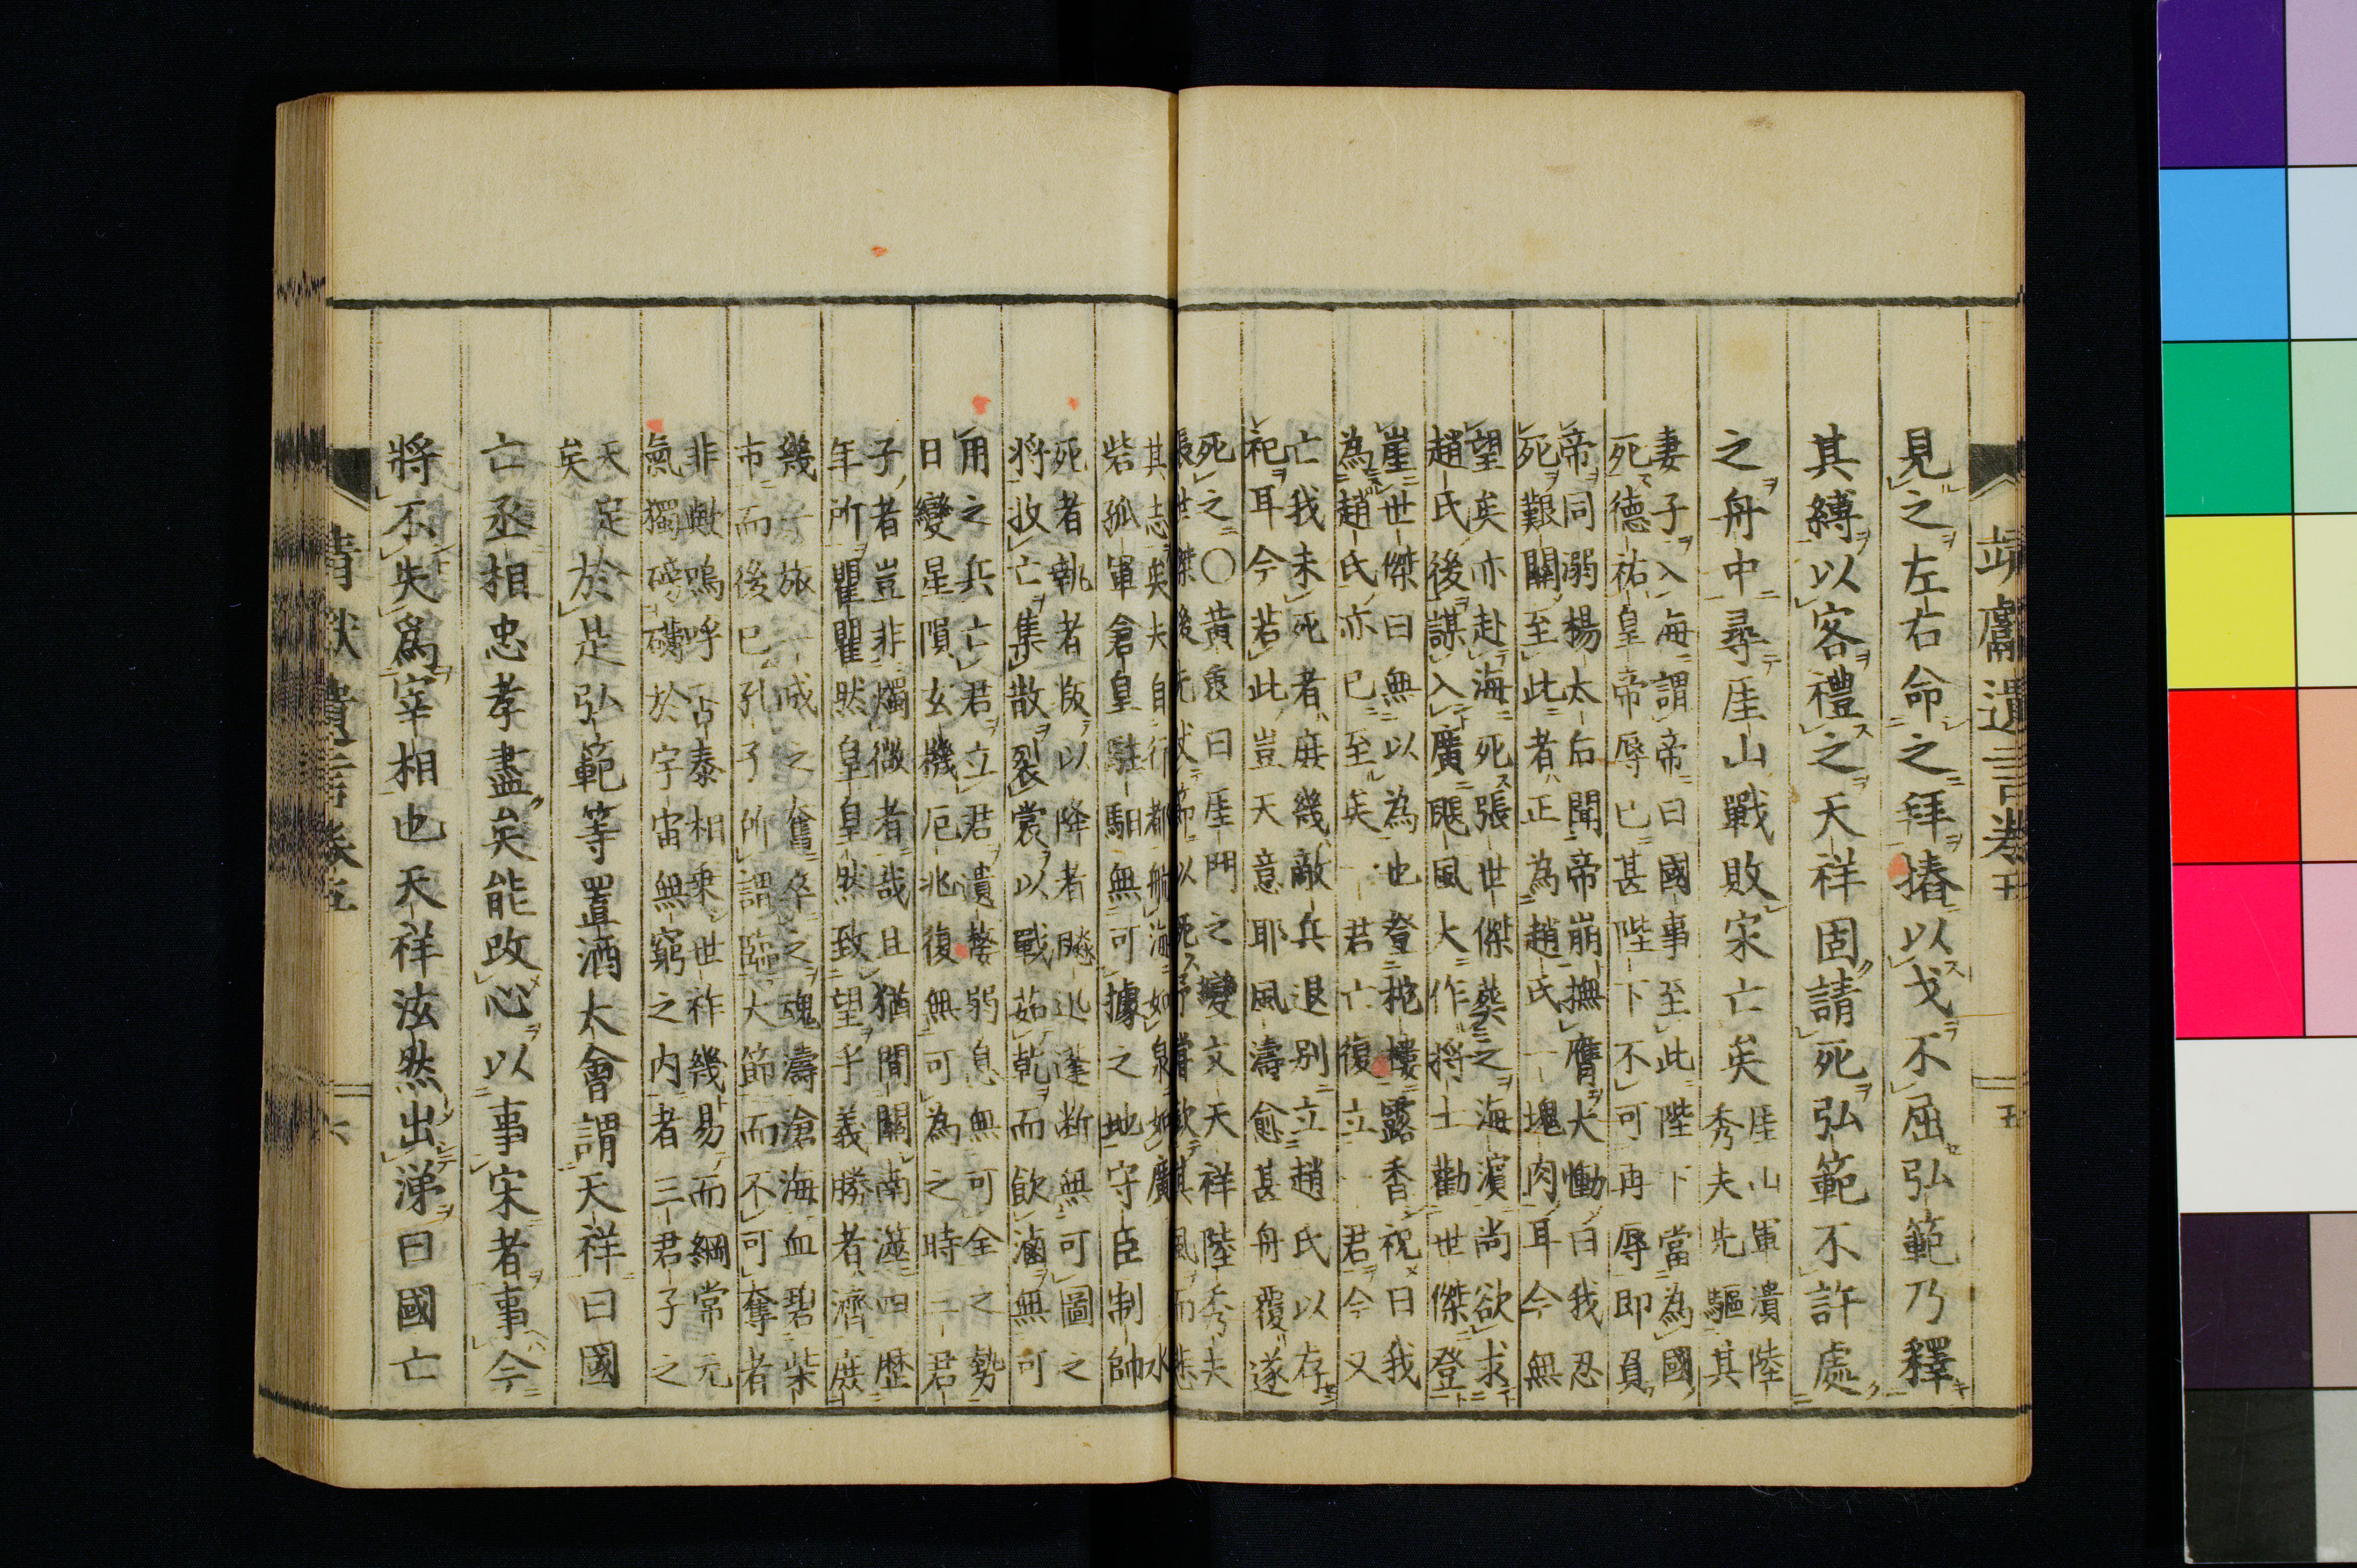 靖獻遺言卷五 五
見之左右命之拜摏以戈不屈弘範乃釋
其縛以客禮之天祥固請死弘範不許處
之舟中尋厓山戰敗宋亡矣
厓山軍潰陸
秀夫先驅其
妻子入海謂帝曰國事至此陛下當為國
死德祐皇帝辱已甚陛下不可再辱即負
帝同溺楊太后聞帝崩撫膺大慟曰我忍
死艱關至此者正為趙氏一塊肉耳今無
望矣亦赴海死張世傑葬之海濵尚欲求
趙氏後謀入廣颶風大作將士勸世傑登
崖世傑曰無以為也登柁樓露香祝曰我
為趙氏亦已至矣一君亡復立一君今又
亡我未死者庶幾敵兵退別立趙氏以存
祀耳今若此豈天意耶風濤愈甚舟覆遂
死之○黃衷曰厓門之變文天祥陸秀夫
張世傑後先伏節以死予嘗歌其風而悲
其志矣夫自行都航海如泉如廣水
砦孤軍倉皇駐無可據之地守臣制帥
死者執者叛以降者騰迅蓬断無可圖之
將收亡集散裂裳以戰茹乾而飲滷無可
用之兵亡君立君遺嫠弱息無可全之勢
日變星隕玄機厄兆復無可為之時二君
子者豈非燭微者哉且猶間關南澨四歴
年所瞿瞿然皇皇然致望乎義勝者濟庶
幾乎旅一成之奮卒之魂濤滄海血碧柴
市而後已孔子所謂臨大節而不可奪者
非歟嗚呼否泰相乗世祚幾易而綱常元
氣獨磅礴於宇宙無窮之内者三君子之
天足
矣
於是弘範等置酒大會謂天祥曰國
亡丞相忠孝盡矣能改心以事宋者事今
將不失爲宰相也天祥泫然出涕曰國亡
靖獻遺言卷五 六